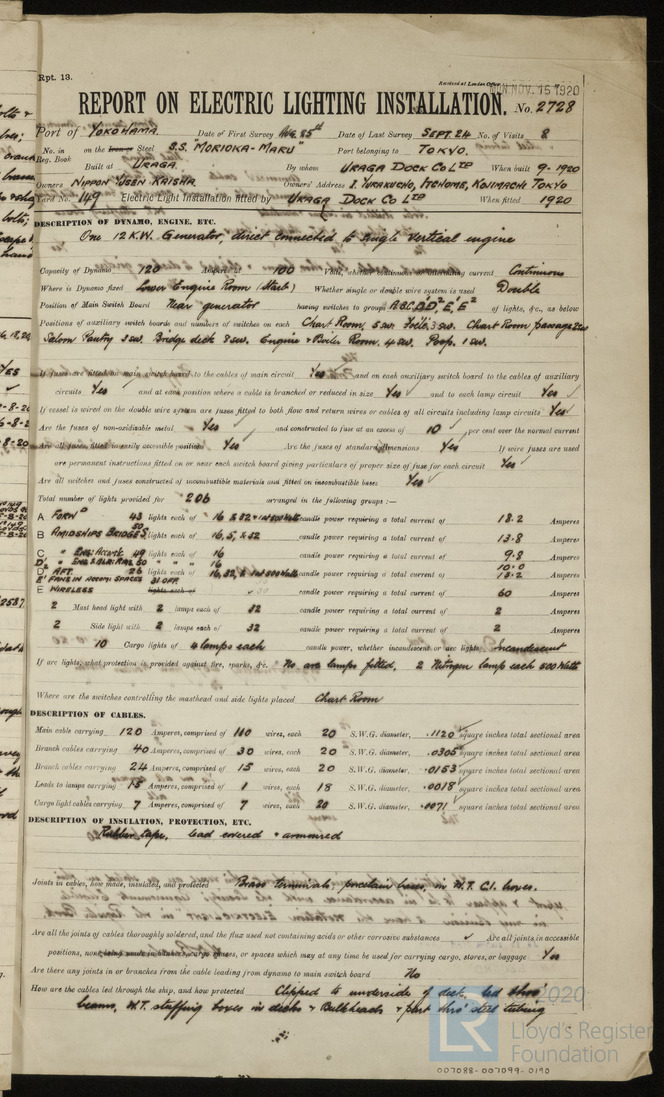 Rpt. 13.
Received at London Office MON. NOV. 15 1920
REPORT ON ELECTRIC LIGHTING INSTALLATION. No. 2728
Port of YOKOHAMA. Date of First Survey Date of Last Survey SEPT. 24 No. of Visits 8
No. in Reg. Book on the Iron or Steel S.S. "MORIOKA-MARU" Port belonging to TOKYO.
Built at URAGA. By whom URAGA DOCK CO LTD When built 9-1920
Owners NIPPON YUSEN KAISHA Owners' Address 1. YURAKUCHO, ITCHOME, KOJIMACHI TOKYO
Yard No. 149 Electric Light Installation fitted by URAGA DOCK CO LTD When fitted 1920
DESCRIPTION OF DYNAMO, ENGINE, ETC.
One 12 K.W. Generator, direct connected to single vertical engine
Capacity of Dynamo 120 Amperes at 100 Volts, whether continuous or alternating current Continuous
Where is Dynamo fixed Lower Engine Room (Starb) Whether single or double wire system is used Double
Position of Main Switch Board Near generator having switches to groups A B C D' D² E' E² of lights, &c., as below
Positions of auxiliary switch boards and numbers of switches on each Chart Room, 5 sw. Fo'cle. 3 sw. Chart Room passage 2 sw
Saloon Pantry 3 sw. Bridge deck 8 sw. Engine & Boiler Room. 4 sw. Poop. 1 sw.
If fuses are fitted on main switch board to the cables of main circuit Yes and on each auxiliary switch board to the cables of auxiliary
circuits Yes and at each position where a cable is branched or reduced in size Yes and to each lamp circuit Yes
If vessel is wired on the double wire system are fuses fitted to both flow and return wires or cables of all circuits including lamp circuits Yes
Are the fuses of non-oxidizable metal Yes and constructed to fuse at an excess of 10 per cent over the normal current
Are all fuses fitted in easily accessible positions Yes Are the fuses of standard dimensions Yes If wire fuses are used
are permanent instructions fitted on or near each switch board giving particulars of proper size of fuse for each circuit Yes
Are all switches and fuses constructed of incombustible materials and fitted on incombustible bases Yes
Total number of lights provided for 206 arranged in the following groups :—
A FORWD 43 lights each of 16 & 32 + 1 N 500 Watts candle power requiring a total current of 18.2 Amperes
B AMIDSHIPS BRIDGES 50 lights each of 16, 5, & 32 candle power requiring a total current of 13.8 Amperes
C " ENG: ACCOM: 49 lights each of 16 candle power requiring a total current of 9.8 Amperes
D' " ENG & BLR: RMS 50 " " " 16 10.0
D² AFT. 26 lights each of 16, 32, & 1 N 500 Watts candle power requiring a total current of 13.2 Amperes
E' FANS IN ACCOM: SPACES 31 OFF.
E WIRELESS lights each of candle power requiring a total current of 60 Amperes
2 Mast head light with 2 lamps each of 32 candle power requiring a total current of 2 Amperes
2 Side light with 2 lamps each of 32 candle power requiring a total current of 2 Amperes
10 Cargo lights of 4 lamps each candle power, whether incandescent or arc lights Incandescent
If arc lights, what protection is provided against fire, sparks, &c. No arc lamps fitted, 2 Nitrogen lamps each 500 Watts
Where are the switches controlling the masthead and side lights placed Chart Room
DESCRIPTION OF CABLES.
Main cable carrying 120 Amperes, comprised of 110 wires, each 20 S.W.G. diameter, .1120 square inches total sectional area
Branch cables carrying 40 Amperes, comprised of 30 wires, each 20 S.W.G. diameter, .0305 square inches total sectional area
Branch cables carrying 24 Amperes, comprised of 15 wires, each 20 S.W.G. diameter, .0153 square inches total sectional area
Leads to lamps carrying 1.8 Amperes, comprised of 1 wires, each 18 S.W.G. diameter, .0018 square inches total sectional area
Cargo light cables carrying 7 Amperes, comprised of 7 wires, each 20 S.W.G. diameter, .0071 square inches total sectional area
DESCRIPTION OF INSULATION, PROTECTION, ETC.
Rubber tape, lead covered & armoured
Joints in cables, how made, insulated, and protected Brass terminals, porcelain bases, in W.T. C.I. boxes.
Are all the joints of cables thoroughly soldered, and the flux used not containing acids or other corrosive substances ✓ Are all joints in accessible
positions, none being made in bunkers, cargo spaces, or spaces which may at any time be used for carrying cargo, stores, or baggage Yes
Are there any joints in or branches from the cable leading from dynamo to main switch board No
How are the cables led through the ship, and how protected Clipped to underside of deck, led thro'
beams, W.T. stuffing boxes in decks & Bulkheads & part thro' steel tubing
© 2020
LR
Lloyd's Register
Foundation
007088-007099-0190